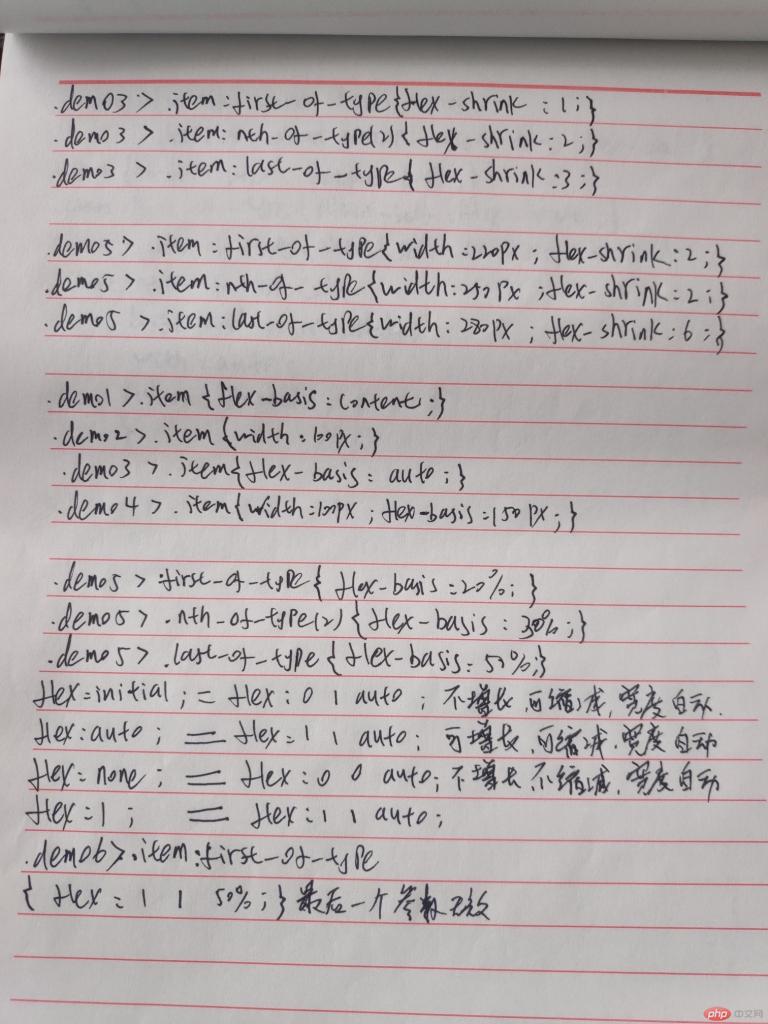 .demo3 > .item:first-of-type{flex-shrink:1;}
.demo3 > .item:nth-of-type(2){flex-shrink:2;}
.demo3 > .item:last-of-type{flex-shrink:3;}
.demo5 > .item:first-of-type{width:220px;flex-shrink:2;}
.demo5 > .item:nth-of-type{width:250px;flex-shrink:2;}
.demo5 > .item:last-of-type{width:280px;flex-shrink:6;}
.demo1 > .item{flex-basis:content;}
.demo2 > .item{width:100px;}
.demo3 > .item{flex-basis:auto;}
.demo4 > .item{width:100px;flex-basis:150px;}
.demo5 > :first-of-type{flex-basis:20%;}
.demo5 > .nth-of-type(2){flex-basis:30%;}
.demo5 > .last-of-type{flex-basis:50%;}
flex:initial; = flex:0 1 auto; 不增长,可缩减,宽度自动.
flex:auto; = flex:1 1 auto; 可增长,可缩减,宽度自动
flex:none; = flex:0 0 auto; 不增长,不缩减,宽度自动
flex:1; = flex:1 1 auto;
.demo6 > .item:first-of-type
{flex:1 1 50%;} 最后一个参数无效
php 中文网